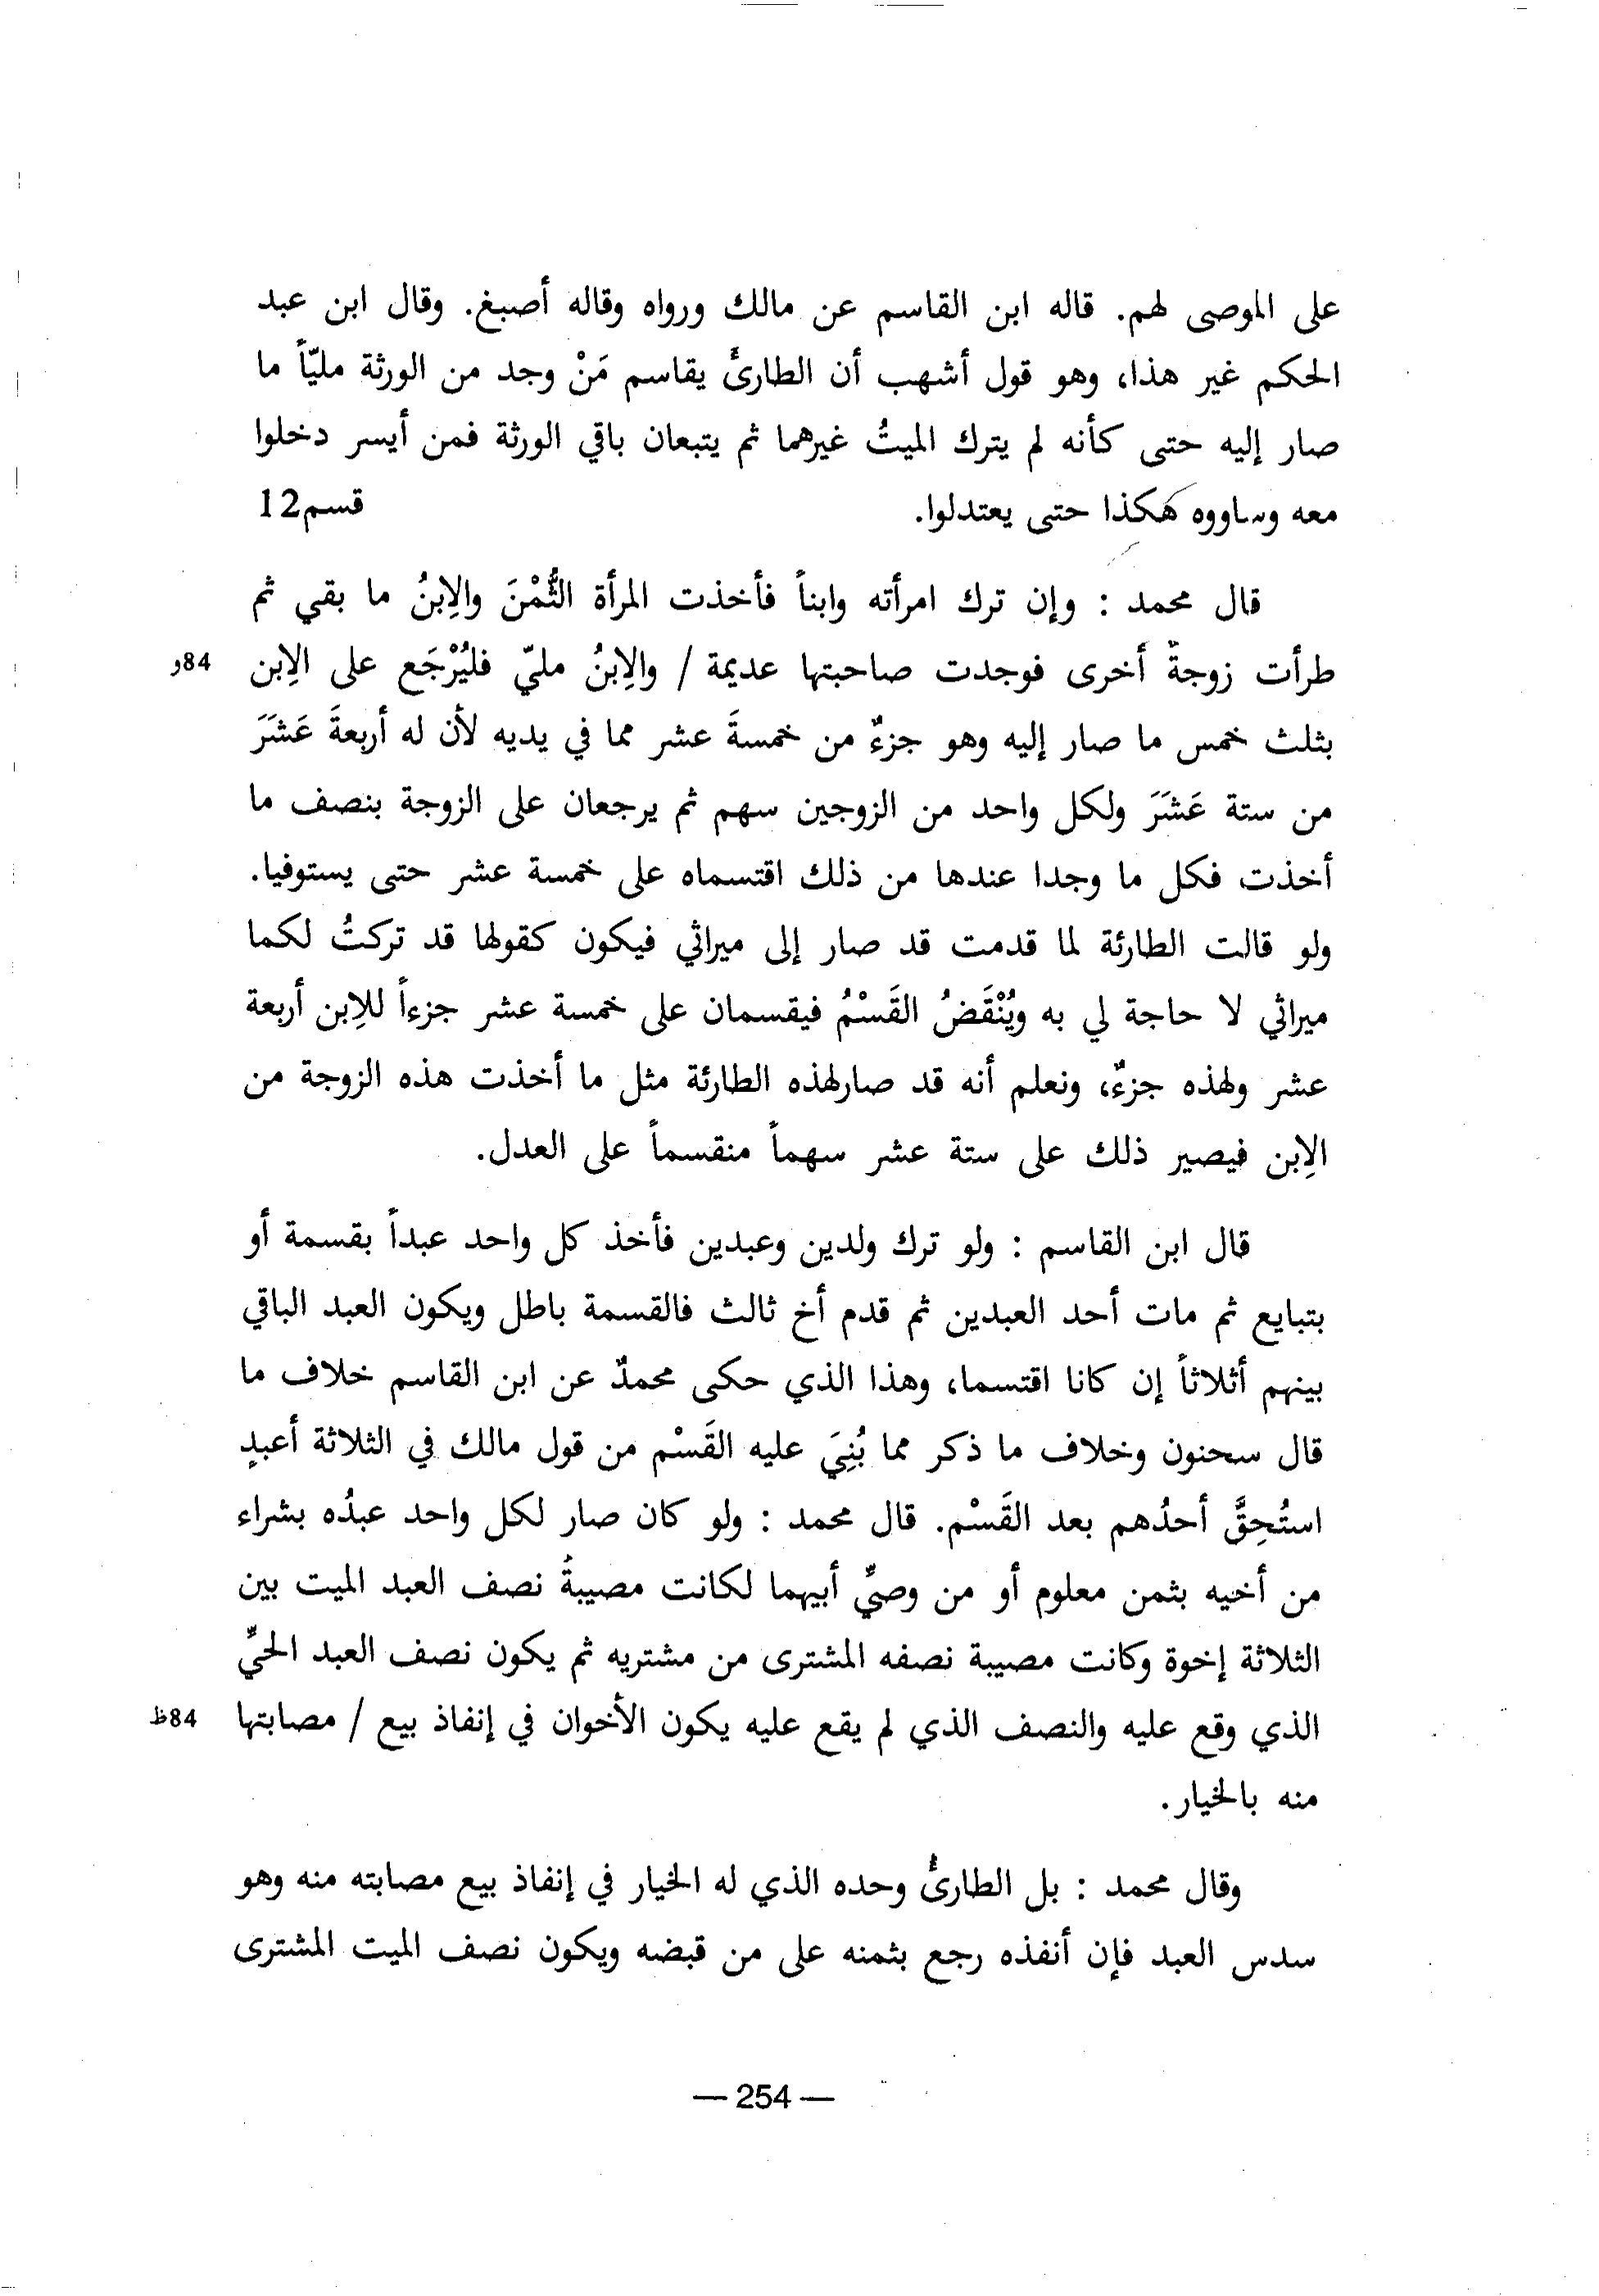 على الموصى لهم. قاله ابن القاسم عن مالك ورواه وقاله أصبغ. وقال ابن عبد
الحكم غير هذا، وهو قول أشهب أن الطارئَ يقاسم مَنْ وجد من الورثة مليّاً ما
صار إليه حتى كأنه لم يترك الميتُ غيرهما ثم يتبعان باقي الورثة فمن أيسر دخلوا
معه وساووه هكذا حتى يعتدلوا. قسم12
قال محمد : وإن ترك امرأته وابناً فأخذت المرأة الثُّمْنَ والإبنُ ما بقي ثم
طرأت زوجةٌ أخرى فوجدت صاحبتها عديمة / والإبنُ مليّ فليُرْجَع على الإبن 84و
بثلث خمس ما صار إليه وهو جزءٌ من خمسةَ عشر مما في يديه لأن له أربعةَ عَشَرَ
من ستة عَشَرَ ولكل واحد من الزوجين سهم ثم يرجعان على الزوجة بنصف ما
أخذت فكل ما وجدا عندها من ذلك اقتسماه على خمسة عشر حتى يستوفيا.
ولو قالت الطارئة لما قدمت قد صار إلى ميراثي فيكون كقولها قد تركتُ لكما
ميراثي لا حاجة لي به ويُنْقَضُ القَسْمُ فيقسمان على خمسة عشر جزءاً للإبن أربعة
عشر ولهذه جزءٌ، ونعلم أنه قد صارلهذه الطارئة مثل ما أخذت هذه الزوجة من
الإبن فيصير ذلك على ستة عشر سهماً منقسماً على العدل.
قال ابن القاسم : ولو ترك ولدين وعبدين فأخذ كل واحد عبداً بقسمة أو
بتبايع ثم مات أحد العبدين ثم قدم أخ ثالث فالقسمة باطل ويكون العبد الباقي
بينهم أثلاثاً إن كانا اقتسما، وهذا الذي حكى محمدٌ عن ابن القاسم خلاف ما
قال سحنون وخلاف ما ذكر مما بُنِيَ عليه القَسْم من قول مالك في الثلاثة أعبدٍ
استُحِقَّ أحدُهم بعد القَسْم. قال محمد : ولو كان صار لكل واحد عبدُه بشراء
من أخيه بثمن معلوم أو من وصيٍّ أبيهما لكانت مصيبةُ نصف العبد الميت بين
الثلاثة إخوة وكانت مصيبة نصفه المشترى من مشتريه ثم يكون نصف العبد الحيِّ
الذي وقع عليه والنصف الذي لم يقع عليه يكون الأخوان في إنفاذ بيع / مصابتها 84ظ
منه بالخيار.
وقال محمد : بل الطارئُ وحده الذي له الخيار في إنفاذ بيع مصابته منه وهو
سدس العبد فإن أنفذه رجع بثمنه على من قبضه ويكون نصف الميت المشترى
— 254 —